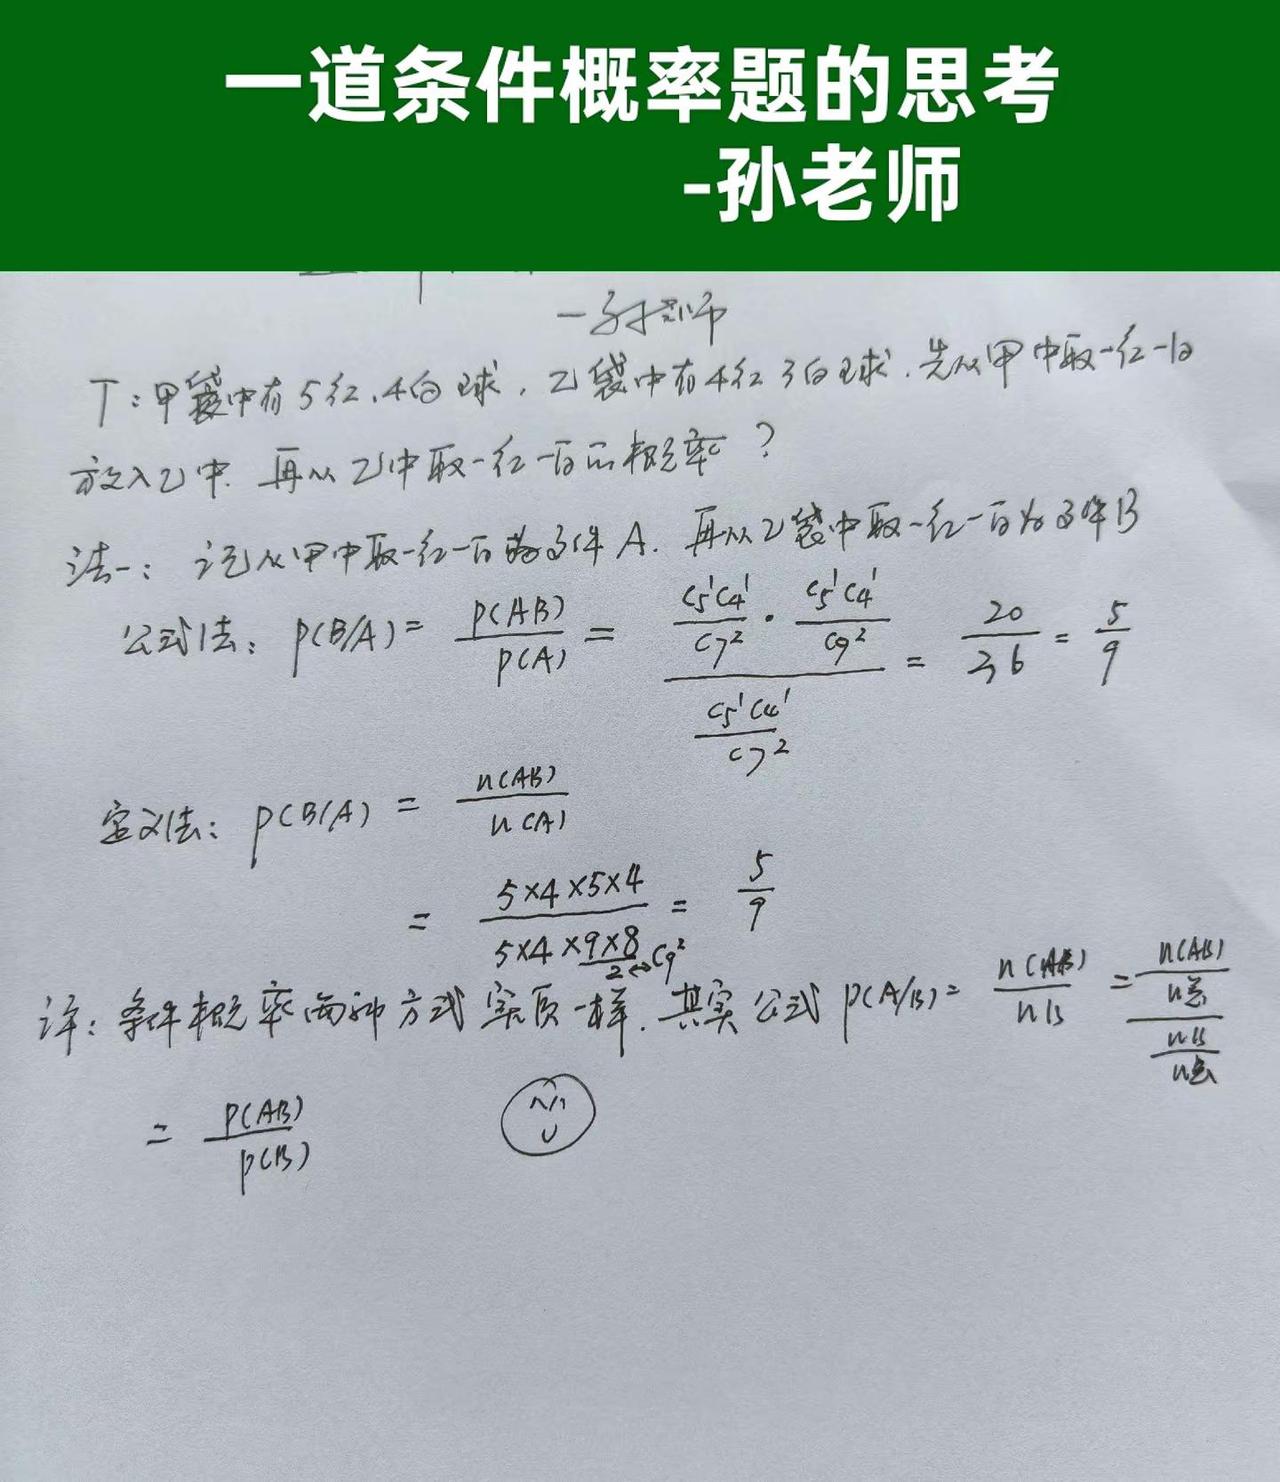 一道条件概率题的思考
-孙老师
一孙老师
T:甲袋中有5红,4白球,乙袋中有4红3白球,先从甲中取一红一白
放入乙中,再从乙中取一红一白的概率?
法一:记从甲中取一红一白为事件A.再从乙袋中取一红一白为事件B
公式法:P(B/A)= P(AB)/P(A) = (C5¹C4¹/C7² · C5¹C4¹/C9²)/(C5¹C4¹/C7²) = 20/36 = 5/9
定义法:P(B/A) = n(AB)/n(A)
= 5×4×5×4/(5×4×9×8/2) = 5/9
2↔C9²
注:条件概率两种方式实质一样.其实公式P(A/B)= n(AB)/nB = (n(AB)/n总)/(nB/n总)
= P(AB)/P(B)